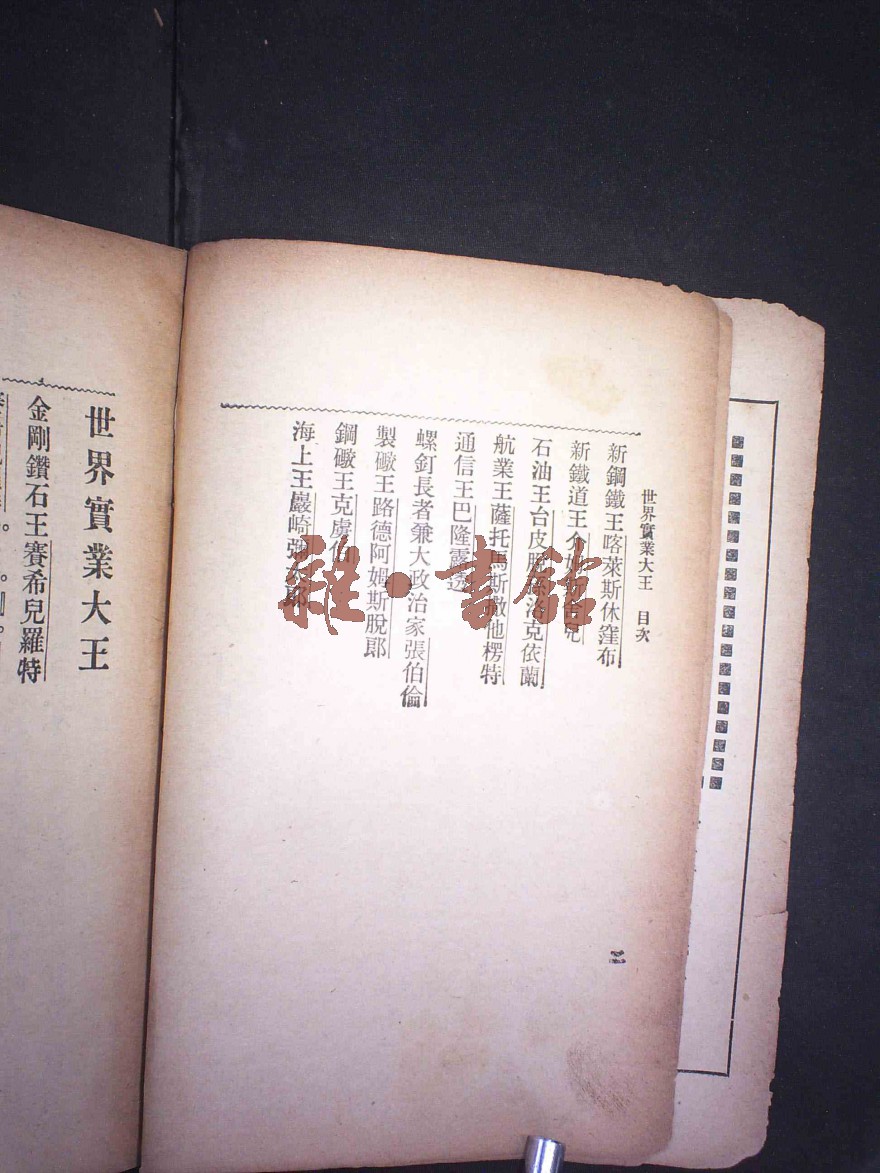 世界實業大王 目次
新鋼鐵王喀萊斯休窪布
新鐵道王介姆斯合兒
石油王台皮 洛克依蘭
航業王薩托馬斯徹他楞特
通信王巴隆露透
螺釘長者兼大政治家張伯倫
製礮王路德阿姆斯脫郎
鋼礮王克虜伯
海上王巖崎彌太郎
二
世界實業大王
金剛鑽石王賽希兒羅特
雜·書館